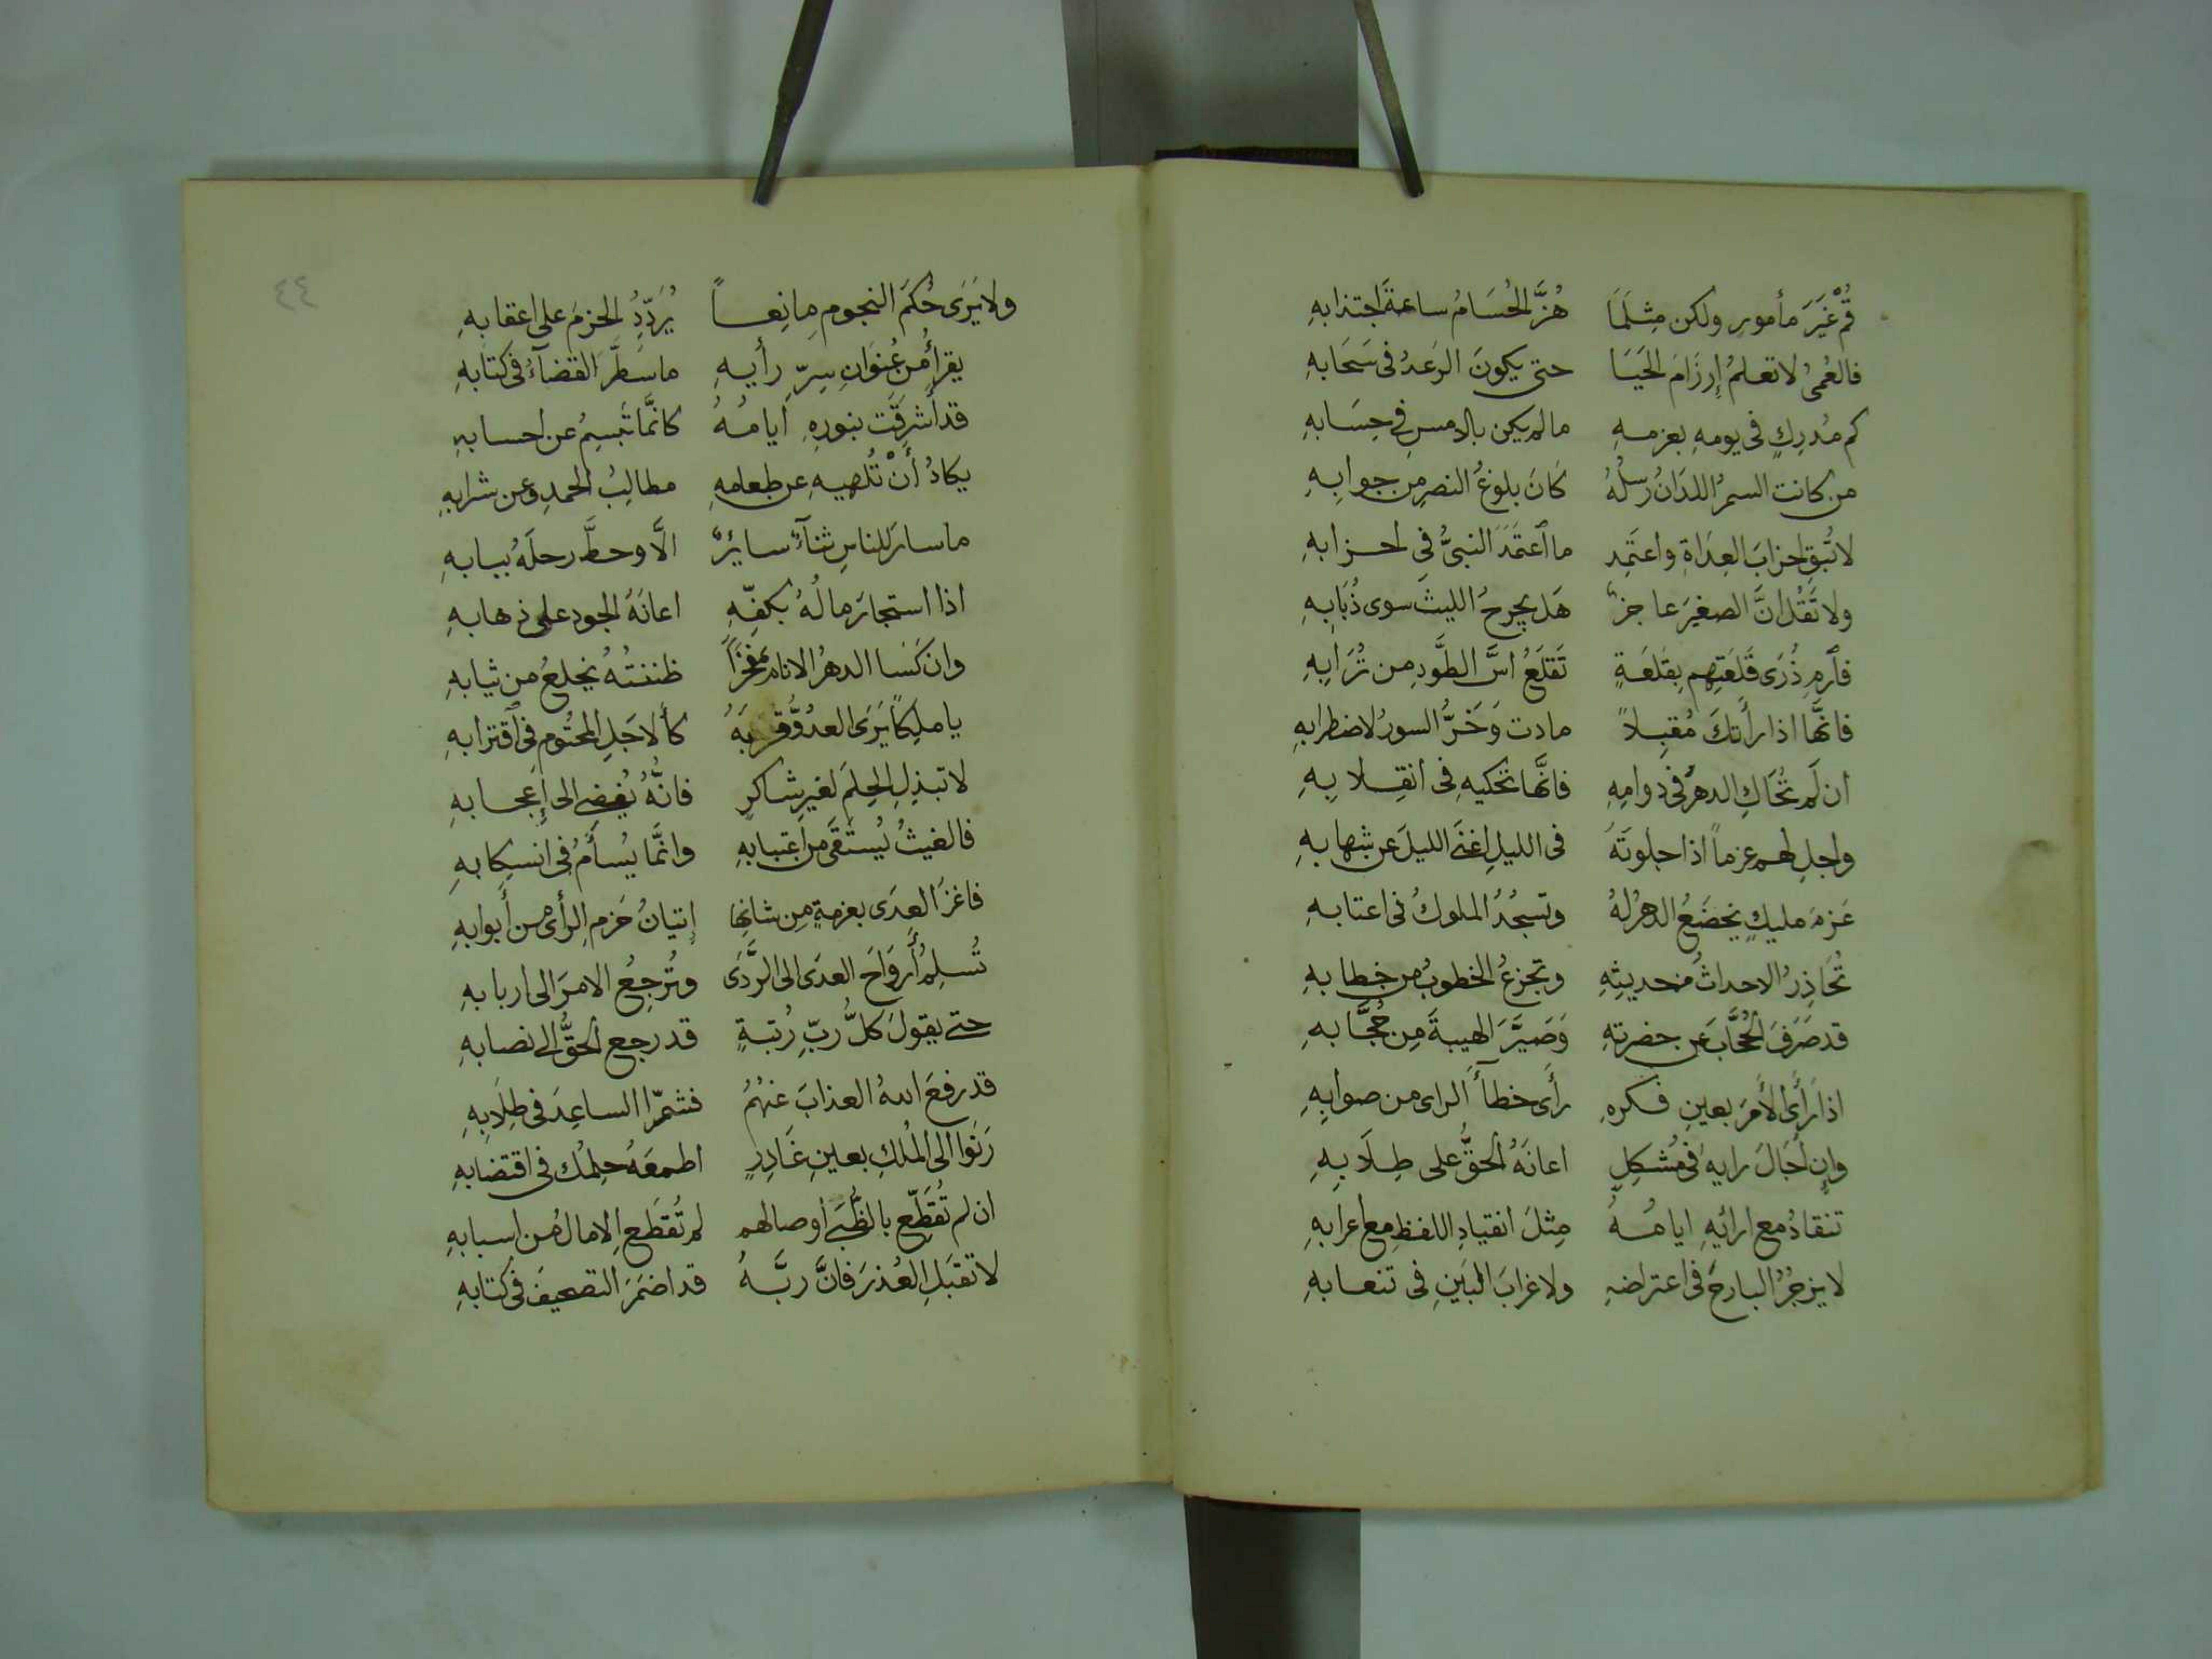 قُمْ غَيَرَ مأمورٍ ولكن مِثلَمَا هُزَّ الحُسَامُ ساعةَ اجتذابهِ
فالعُمىُ لا تعلمُ إِرزَامَ الحَيَا حتى يكونَ الرَعدُ فى سَحَابهِ
كم مُدرِكٍ فى يومهِ بعزمهِ مالم يكن بالامسِ فى حِسَابهِ
من كانت السمرُ اللدَانُ رُسلُهُ كَانَ بلوغُ النصرِ مِن جوابِهِ
لا تُبقِ احزابَ العِدَاةِ واعتَمِد ما ٱعتَمَدَ النبىُّ فى احزابهِ
ولا تَقُل انَّ الصغيرَ عاجزٌ هَل يجرحُ الليثَ سوى ذُبَابِهِ
فٱرمِ ذُرَى قَلعَتِهِم بِقَلعَةٍ تَقلَعُ اسَّ الطَّودِ مِن تُرَابِهِ
فانَّها اذا رأَتكَ مُقبِلاً مادت وَخَرَّ السورُ لاضطرابهِ
ان لَم تُحَاكِ الدهرَ فى دوامِهِ فانَّها تحكيهِ فى انقِلابِهِ
واجلِ لهم عزماً اذا جلوتَهُ فى الليلِ اغنَى الليلَ عن شهابهِ
عَزمَ مليكٍ يخضَعُ الدهرُ لهُ وتسجُدُ الملوكُ فى اعتابهِ
تُحَاذِرُ الاحداثُ من حديثِهِ وتجزعُ الخطوبُ من خطابهِ
قد صَرَفَ الحُجَّابَ عَن حضرتهِ وَصَيَّرَ الهيبةَ مِن حُجَّابهِ
اذا رَأَى الأَمرَ بعينِ فكرهِ رأَى خطأَ الراى من صوابِهِ
وإِن أَجَالَ رايه فى مُشكِلٍ اعانَهُ الحَقُّ على طِلَابِهِ
تنقادُ مع ارائِهِ ايامُهُ مِثلَ انقيادِ اللفظِ مع اعرابهِ
لا يزجُرُ البارحَ فى اعتراضهِ ولا غرابَ البَينِ فى تنعابهِ
ولا يَرَى حُكمَ النجوم مانِعاً يُرَدِّدُ الحزمَ على اعقابهِ
يقرأُ من عُنوَانِ سِرِّ رأيهِ ما سَطَّرَ القضآءُ فى كتابهِ
قد أَشرَقَت بنورهِ ايامُهُ كانَّما تَبسِمُ عن احسابهِ
يكادُ أَنْ تُلهيهِ عن طعامهِ مطالِبُ الحمدِ وعن شرابهِ
ما سارَ للناسِ ثنآءٌ سايرٌ الَّا وحطَّ رحلَهُ ببابهِ
اذا استجارَ مالُهُ بكفِّهِ اعانَهُ الجود على ذهابهِ
وان كَسَا الدهرُ الانامَ مَفخَراً ظننتُهُ يخلعُ من ثيابهِ
يا مليكاً يَرَى العدوُّ قربَهُ كٱلاجَلِ المحتُومِ فى ٱقترابهِ
لا تبذِلِ الحِلمَ لغيرِ شاكرٍ فانَّهُ يُفضِى الى إِعجابهِ
فالغيثُ يُستَقَى من اعتبابهِ وانَّما يُسأَمُ فى انسِكابهِ
فاغزُ العِدَى بعزمةٍ مِن شانِها إِتيانُ حَزمِ الرأى من أَبوابهِ
تُسلِمُ أَروَاحَ العِدَى الى الرَّدَى وتُرجِعُ الامرَ الى اربابهِ
حتى يقولَ كلُّ رَبِّ رُتبةٍ قد رجع الحقُّ الى نصابهِ
قد رفعَ اللهُ العذابَ عنهُمُ فشمّرا الساعِدَ فى طِلَابهِ
رَنَوا الى المُلكِ بعينِ غَادِرٍ اطمعَهُ حِلمُك فى اقتضابهِ
ان لم تُقَطِّع بالظُّبَى اوصالهم لم تُقطَعِ الامال من اسبابهِ
لا تقبَلِ العُذرَ فانَّ ربَّهُ قد اضمَرَ التصحيفَ فى كتابهِ
٤٤